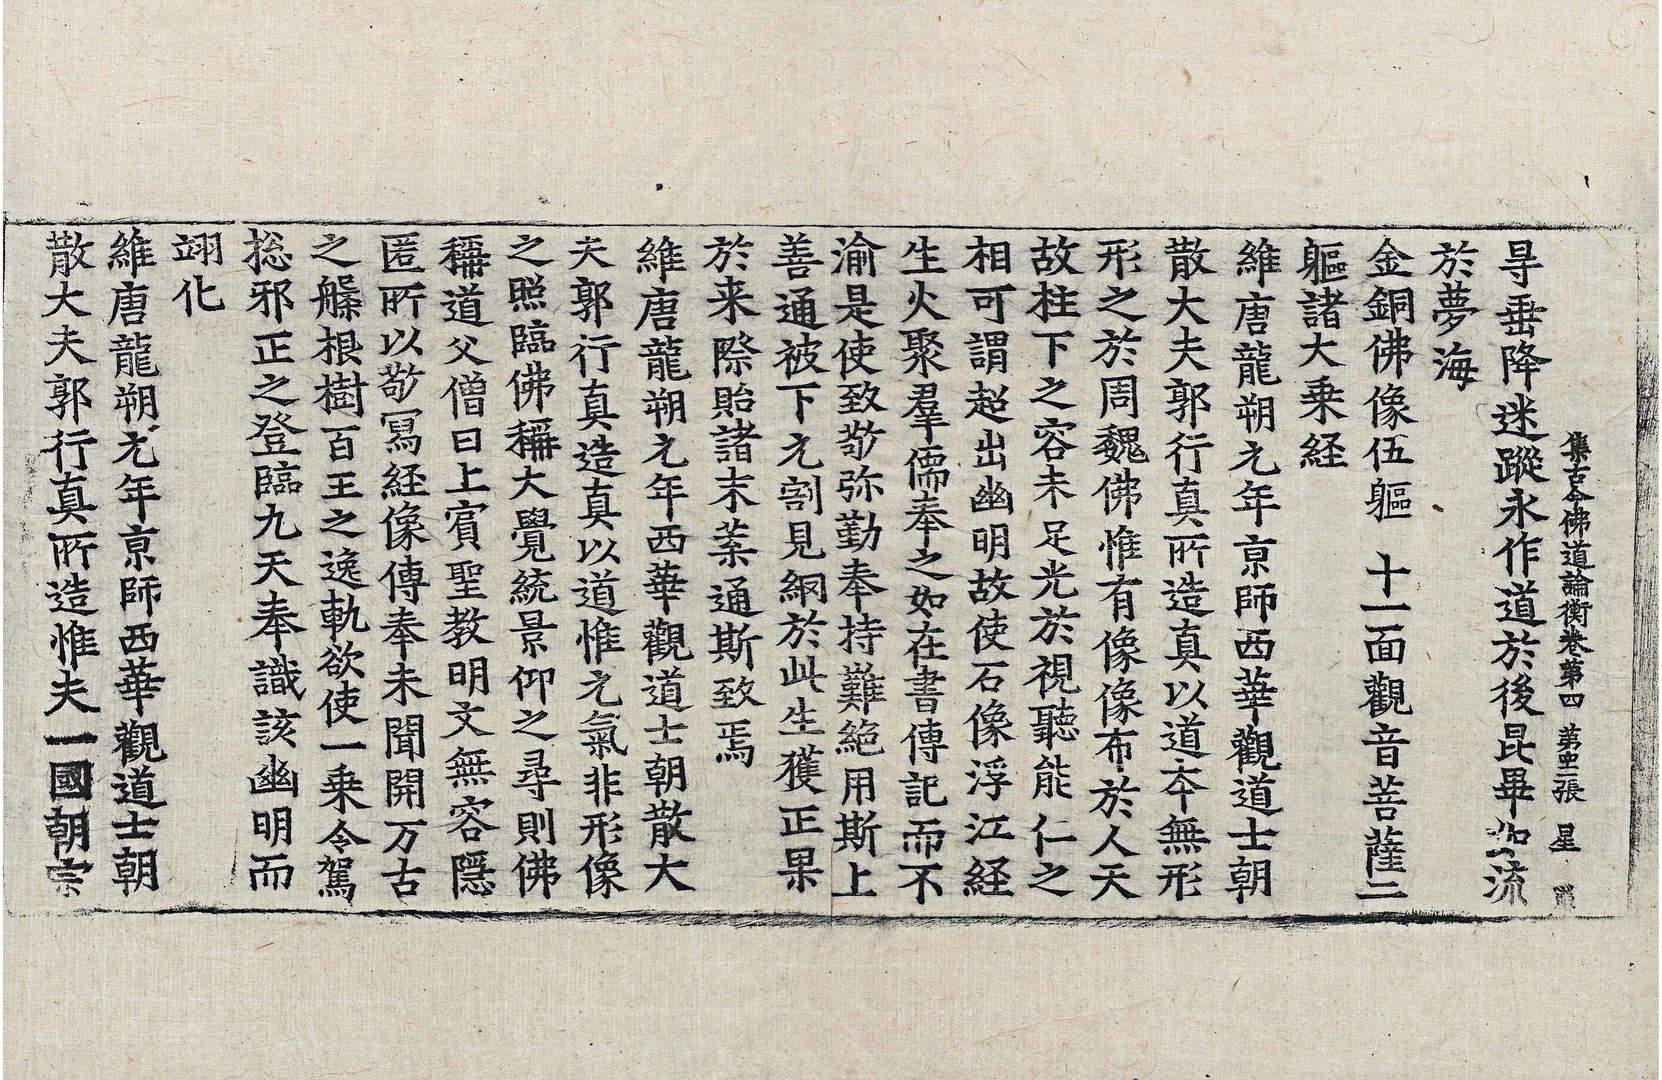 集古今佛道論衡卷第四 第三張 星
㝵垂降迷蹤永作道於後昆畢 流
於夢海
金銅佛像伍軀 十一面觀音菩薩二
軀諸大乗経
維唐龍朔元年京師西華觀道士朝
散大夫郭行真所造真以道夲無形
形之於周魏佛惟有像像布於人天
故柱下之容未足光於視聽能仁之
相可謂超出幽明故使石像浮江経
生火聚羣儒奉之如在書傳記而不
渝是使致敬弥勤奉持難絶用斯上
善通被下元割見網於此生獲正果
於来際貽諸末葉通斯致焉
維唐龍朔元年西華觀道士朝散大
夫郭行真造真以道惟元氣非形像
之照臨佛稱大覺統景仰之尋則佛
稱道父僧曰上賓聖教明文無容隱
匿所以敬冩経像傳奉未聞開万古
之 根樹百王之逸軌欲使一乗令駕
捴邪正之登臨九天奉識該幽明而
翊化
維唐龍朔元年京師西華觀道士朝
散大夫郭行真所造惟夫一國朝宗